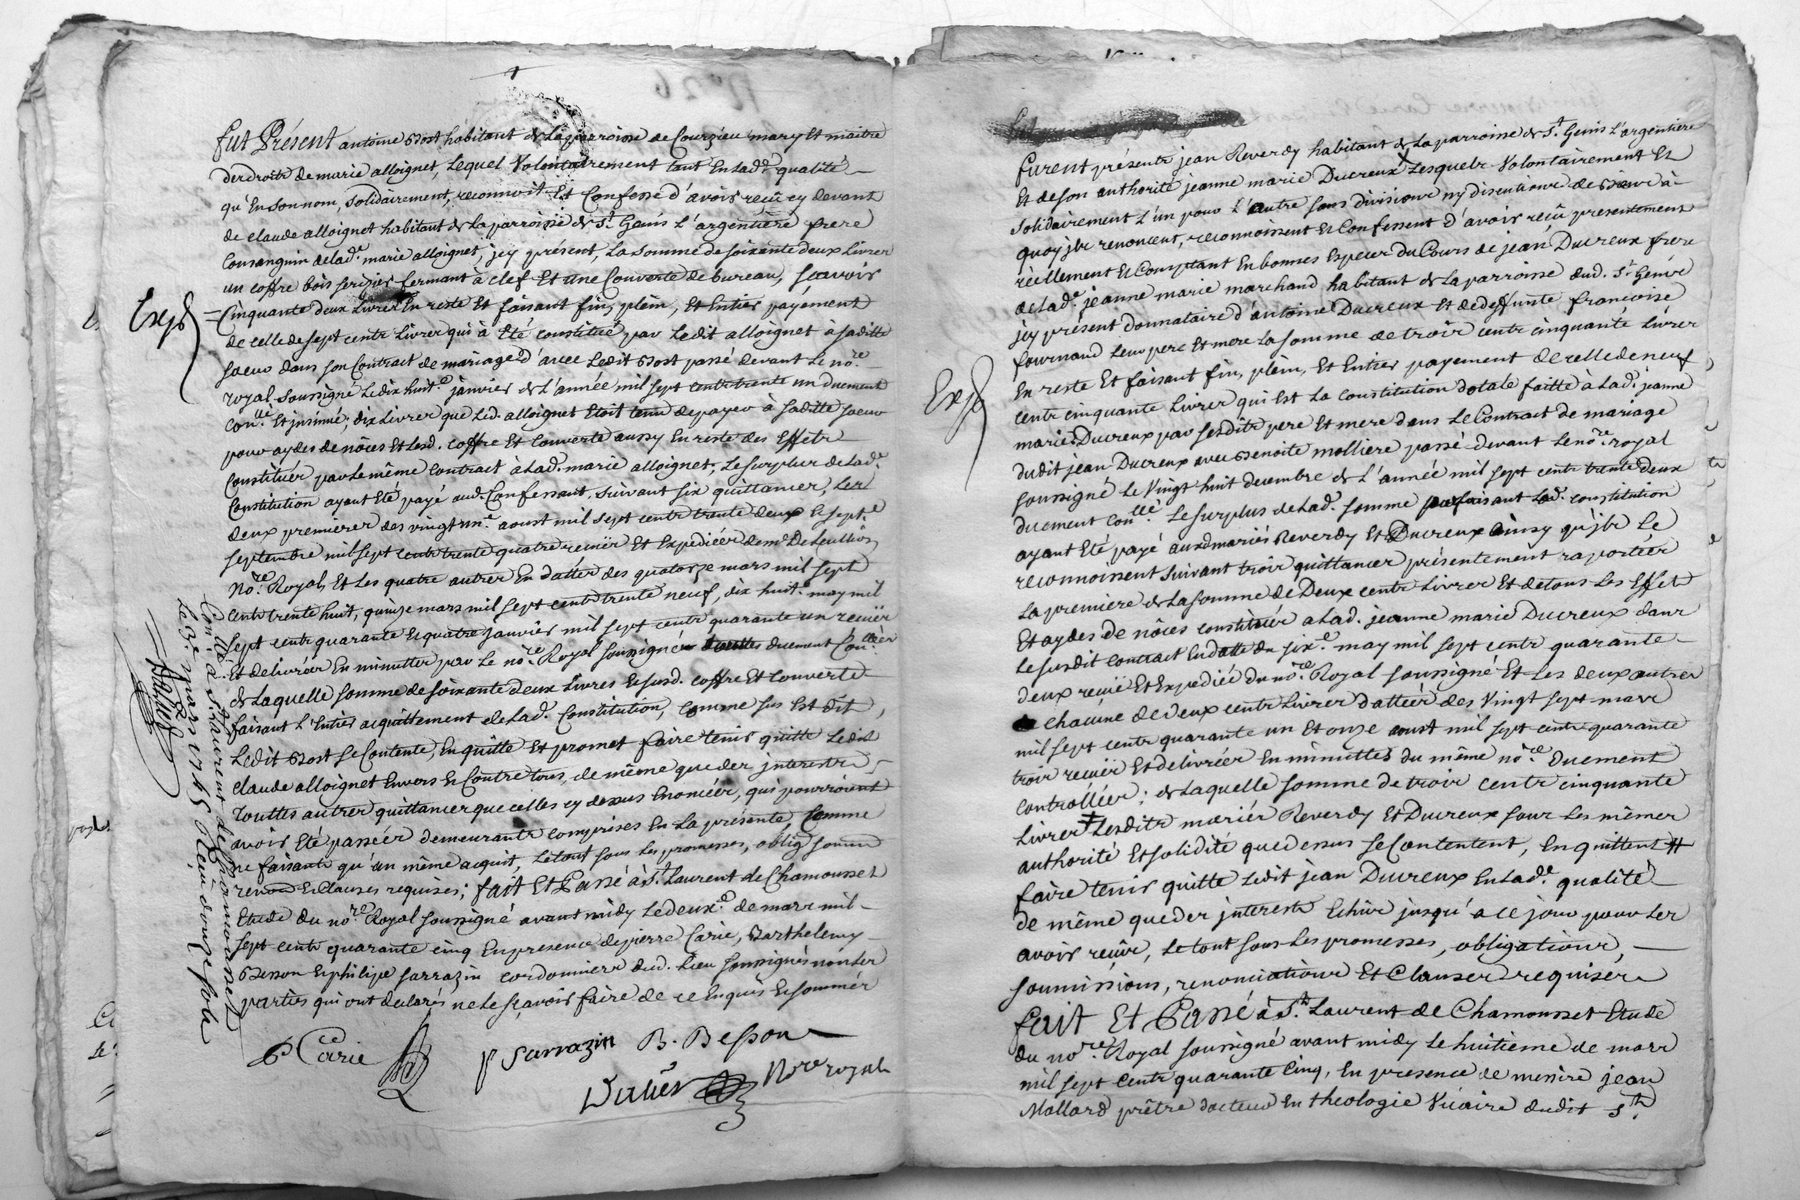 fut Présent antoine Bost habitant de La parroisse de Courzieu mary Et maitre
des droits de marie alloignet, Lequel Volontairement tant En Lad.e qualité
qu'En son nom, solidairement, reconnoit Et Confesse d'avoir reçû cy devant
de claude alloignet habitant de La parroisse de St. Genis L'argentiere frere
Consanguin de lad.e marie alloignet, jcy présent, La somme de soixante deux Livres
un coffre bois serizier fermant à clef Et une Couverte de bureau, scavoir
Cinquante deux Livres En reste Et faisant fin, plein, Et Entier payement
de celle de sept cents Livres qui à Eté constituée par Ledit alloignet à saditte
soeur dans son Contract de mariage d'avec Ledit Bost passé devant Le no.re
royal soussigné Le dix huit.e janvier de L'année mil sept cents trente un duement
Con.llé Et jnsinué; dix Livres que Led. alloignet Etoit tenu de payer à saditte soeur
pour aydes de nôces Et Lesd. coffre Et couverte aussy En reste des Effets
Constitués par Le même Contract à Lad. marie alloignet, Le surplus de Lad.e
Constitution ayant Eté payé aud. Confessant, suivant six quittances, Les
deux premieres des vingt un.e aoust mil sept cents trente deux Et sept.e
septembre mil sept cents trente quatre recuës Et Expediées de me
No.re Royal, Et Les quatre autres En dattes des quatorze mars mil sept
Cents trente huit, quinze mars mil sept cents trente neuf, dix huit.e may mil
sept cents quarante Et quatre janvier mil sept cents quarante un recuës
Et delivrées En minuttes par Le no.re Royal soussigné duement Con.llées
de Laquelle somme de soixante deux Livres Et susd. coffre Et Couverte
faisant L'Entier acquittement de Lad.e Constitution, comme sus Est dit,
Ledit Bost se Contente, En quitte Et promet faire tenir quitte Ledit
claude alloignet Envers Et Contre tous, de même que des jnterests,
Touttes autres quittances que celles cy dessus Enoncées, qui pourroient
avoir Eté passées demeurants comprises En La présente, Comme
ne faisants qu'un même acquit, Le tout sous Les promesses, oblig. soum
renon Et Clauses requises; fait Et Passé à St. Laurent de Chamousset
Etude du no.re Royal soussigné avant midy Le deux.e de mars mil
sept cents quarante cinq En presence de pierre Carie, Barthelemy
Besson Et philipe sarrazin cordonniers dud. Lieu soussignés non Les
parties qui ont declarés ne Le scavoir faire de ce Enquis Et sommés
P Carie
P Sarrazin B. Besson
No.re royal
Exp.é
Con.llé à St. Laurent de Chamousset
Le 3e mars 1745 Reçu douze sols
furent présents jean Reverdy habitant de La parroisse de St. Genis L'argentiere
Et de son authorité jeanne marie Ducreux Lesquels Volontairement Et
solidairement L'un pour L'autre sans divisions ny discutions de biens à
quoy jls renoncent, reconnoissent Et Confessent d'avoir reçû presentement
réellement Et Comptant En bonnes Especes du Cours de jean Ducreux frere
de Lad.e jeanne marie marchand habitant de La parroisse dud. St. Genis
jcy présent donnataire d'antoine Ducreux Et de deffunte francoise
fournand Leur pere Et mere La somme de trois cents cinquante Livres
En reste Et faisant fin, plein, Et Entier payement de celle de neuf
cents cinquante Livres qui Est La constitution dotale faitte à Lad. jeanne
marie Ducreux par sesdits pere Et mere dans Le Contract de mariage
dudit jean Ducreux avec Benoite molliere passé devant Le no.re royal
soussigné Le Vingt huit decembre de L'année mil sept cents trente deux
duement con.llé. Le surplus de Lad. somme faisant Lad. constitution
ayant Eté payé auxd mariés Reverdy Et Ducreux ainsy qu'jls Le
reconnoissent suivant trois quittances présentement raportées
La premiere de La somme de Deux cents Livres Et de tous Les Effets
Et aydes de nôces constitués a Lad. jeanne marie Ducreux dans
Le susdit contract En datte du six.e may mil sept cents quarante
deux recuë Et Expediée du no.re Royal soussigné Et Les deux autres
chacune de deux cents Livres dattées des Vingt sept mars
mil sept cents quarante un Et onze aoust mil sept cents quarante
trois recuës Et delivrées En minuttes du même no.re Duement
controllées; de Laquelle somme de trois cents cinquante
Livres Lesdits mariés Reverdy Et Ducreux sous Les mêmes
authorité Et solidité que dessus se Contentent, En quittent #
faire tenir quitte Ledit jean Ducreux En Lad.e qualité
de même que des jnterests Echus jusqu'a ce jour pour Les
avoir reçûs, Le tout sous Les promesses, obligations,
soumissions, renonciations Et Clauses requises
fait Et Passé à St. Laurent de Chamousset Etude
du no.re Royal soussigné avant midy Le huitieme de mars
mil sept cents quarante Cinq, En presence de messire jean
Mollard prêtre docteur En theologie Vicaire dudit St.
Exp.é